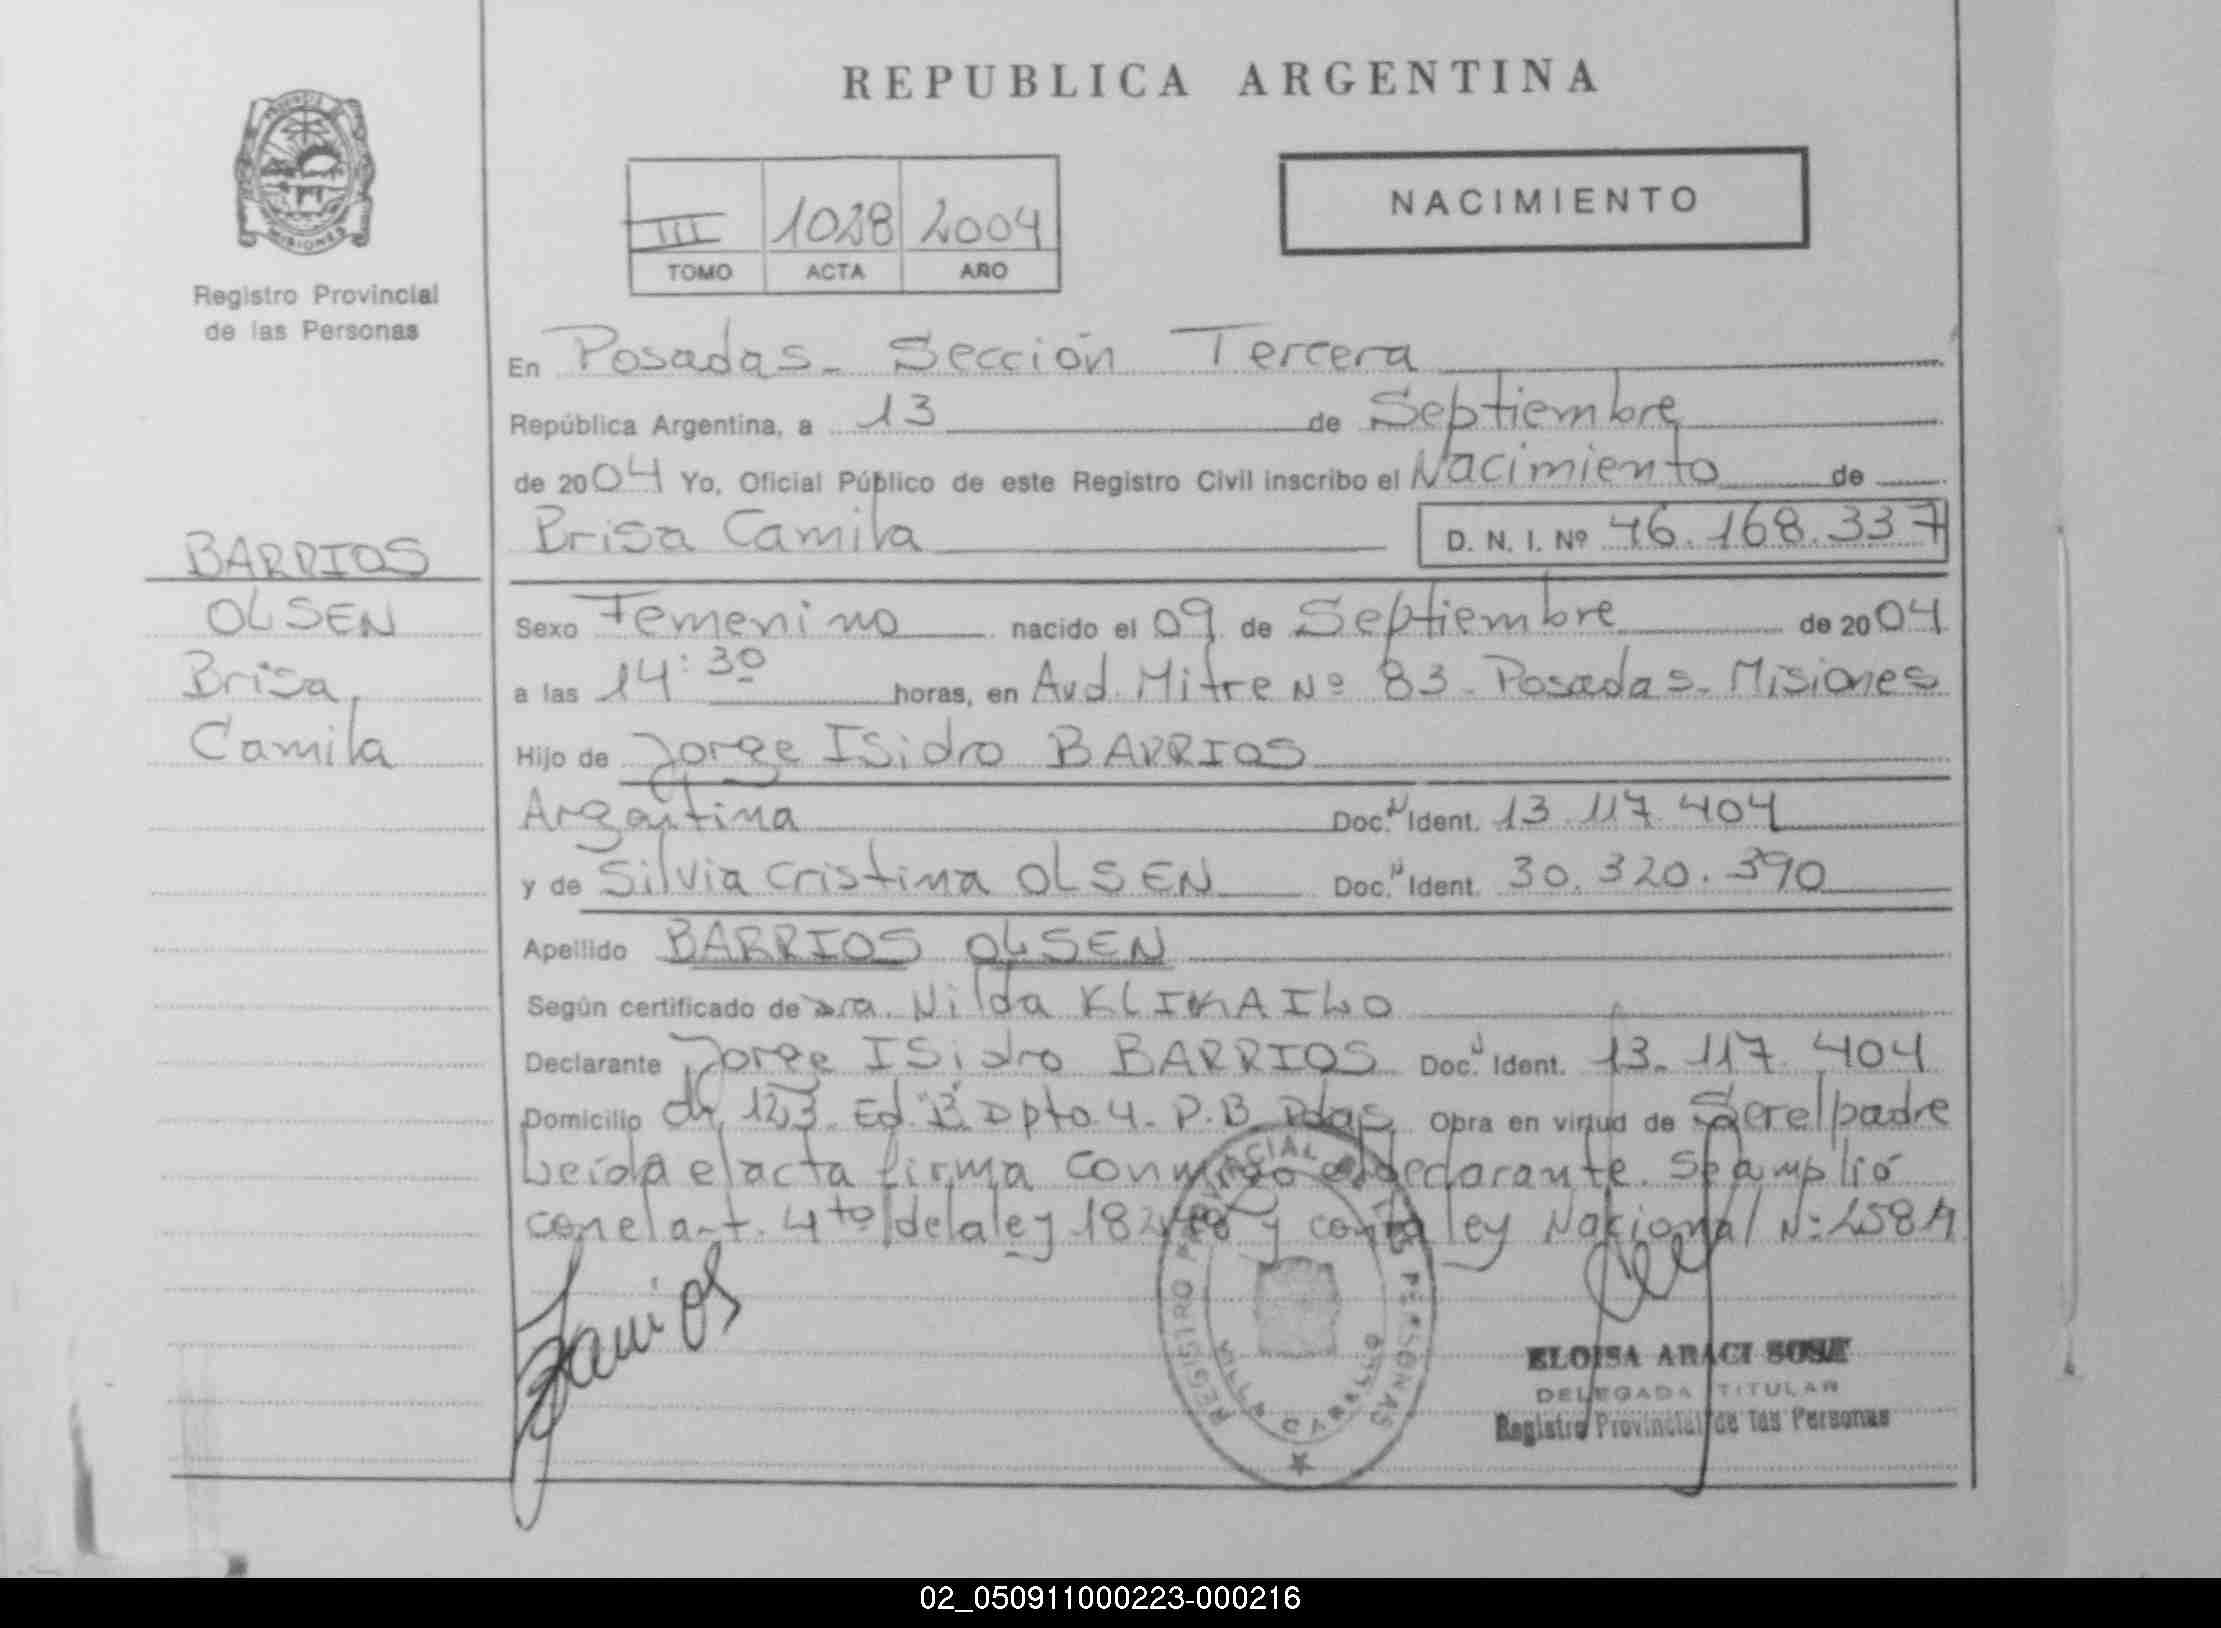 REPUBLICA ARGENTINA
PROVINCIA DE
MISIONES
Registro Provincial
de las Personas
III 1028 2004
TOMO ACTA AÑO
NACIMIENTO
En Posadas - Sección Tercera
República Argentina, a 13 de Septiembre
de 2004 Yo, Oficial Público de este Registro Civil inscribo el Nacimiento de
Brisa Camila D. N. I. Nº 46.168.337
BARRIOS
OLSEN
Brisa
Camila
Sexo Femenino nacido el 09 de Septiembre de 2004
a las 14:30 horas, en Avd. Mitre Nº 83 - Posadas - Misiones
Hijo de Jorge Isidro BARRIOS
Argentina Doc. N Ident. 13.117.404
y de Silvia Cristina OLSEN Doc. N Ident. 30.320.390
Apellido BARRIOS OLSEN
Según certificado de Dra. Nilda
Declarante Jorge Isidro BARRIOS Doc. N Ident. 13.117.404
Domicilio Ch. 123 Ed. "B" Dpto 4 - P.B. Pdas Obra en virtud de Ser el padre
Leída el acta firma conmigo el declarante. Se amplió
con el art. 4to de la ley y con la ley Nacional
Barrios
REGISTRO PROVINCIAL DE LAS PERSONAS
VILLA CABELLO
ELOISA ARACI SOSA
DELEGADA TITULAR
Registro Provincial de las Personas
02_050911000223-000216